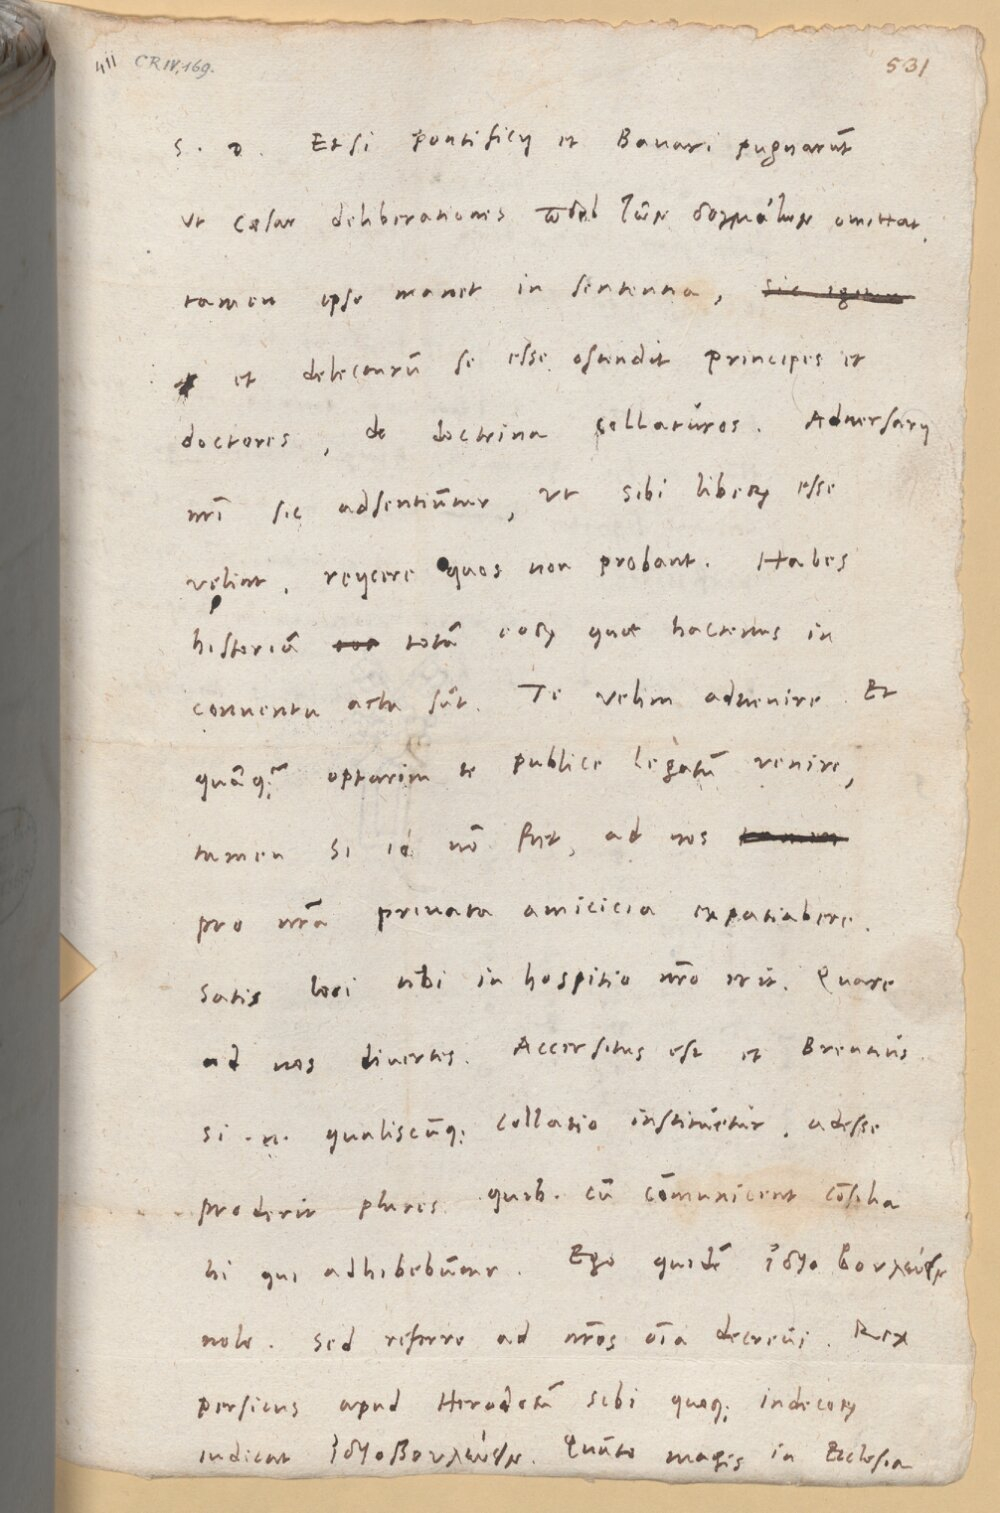 411 CR IV, 169. 531
S. D. Etsi pontificij et Bavari pugnarūt
ut Cæsar deliberationes περὶ τῶν δογμάτων omittat,
tamen ipse manet in sententia, sic igitur
et delecturū se esse ostendit principes et
doctores, de doctrina collaturos. Adversarij
nr̄i sic adsentiūtur, ut sibi liberū esse
velint, reijcere quos non probant. Habes
historiā totā eorū quæ hactenus in
conventu acta sūt. Te velim advenire. Et
quāq; optarim te publice legatū venire,
tamen si id nō fiet, ad nos tamen
pro nr̄a privata amicicia expatiabere.
Satis loci tibi in hospitio nr̄o erit. Quare
ad nos divertes. Accersitus est et Brentius.
Si .n. qualiscūq; collatio instituetur, adesse
proderit plures quib. cū cōmunicent cōsilia
hi qui adhibebūtur. Ego quidē ἰδιοβουλεύειν
nolo. Sed referre ad nr̄os oīa decrevi. Rex
persicus apud Herodotū sibi quoq; indecorū
iudicat ἰδιοβουλεύειν. Quāto magis in Ecclesia